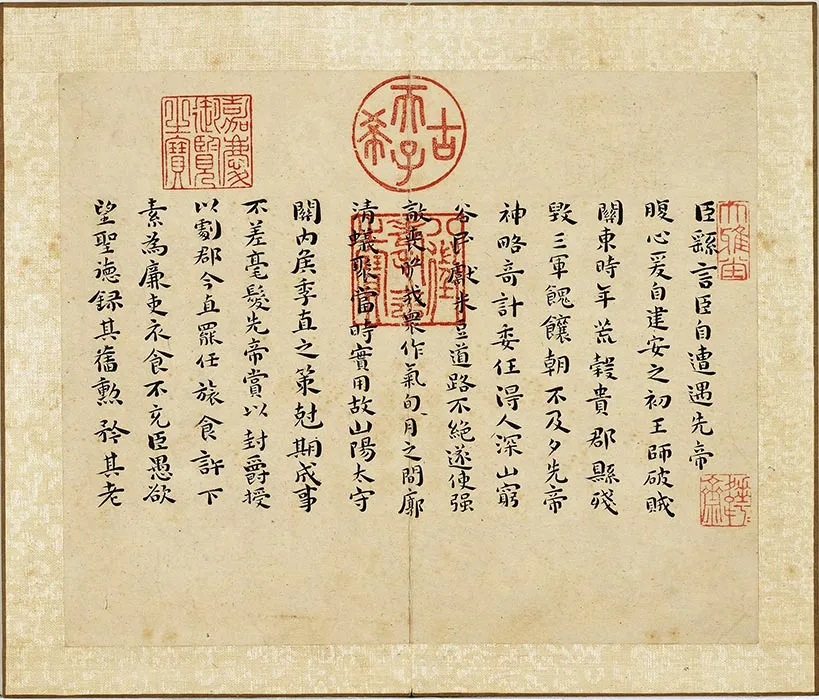 臣繇言臣自遭遇先帝
腹心爰自建安之初王師破賊
關東時年荒穀貴郡縣殘
毀三軍餽饟朝不及夕先帝
神略奇計委任得人深山窮
谷民獻米豆道路不絶遂使强
敵喪膽我衆作氣旬月之間廓
清蟻聚當時實用故山陽太守
關內侯季直之策尅期成事
不差毫髮先帝賞以封爵授
以劇郡今直罷任旅食許下
素為廉吏衣食不充臣愚欲
望聖德録其舊勲矜其老
古希天子
嘉慶御覽之寶